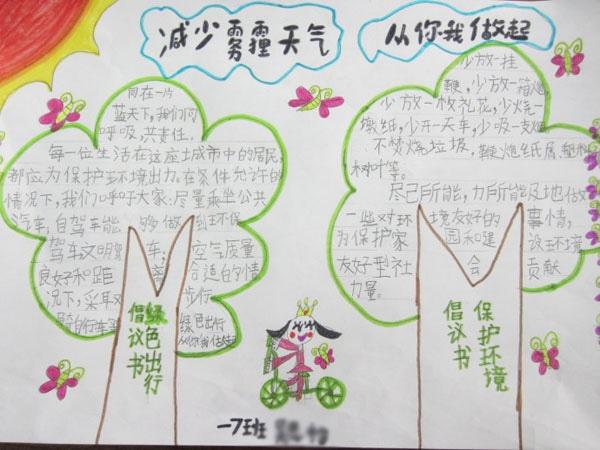 减少雾霾天气
从你我做起
同在一片
蓝天下,我们同
呼吸,共责任。
每一位生活在这座土成市中的居民,
都应为保护环境出力。在条件允许的
情况下,我们呼吁大家:尽量乘坐公共
汽车,自驾车能够做到环保
驾车文明驾车;空气质量
良好和距离合适的情
况下,采取步行
骑自行车等绿色出行
从你我做起
绿色出行
倡议书
少放一挂
鞭,少放一箱炮,
少放一枚礼花,少烧一
墩纸,少开一天车,少吸一支烟
不焚烧垃圾,鞭炮纸屑,塑料
树叶等。
尽己所能,力所能及地做
一些对环境友好的事情,
为保护家园和建设环境
友好型社会贡献
力量。
保护环境
倡议书
一7班